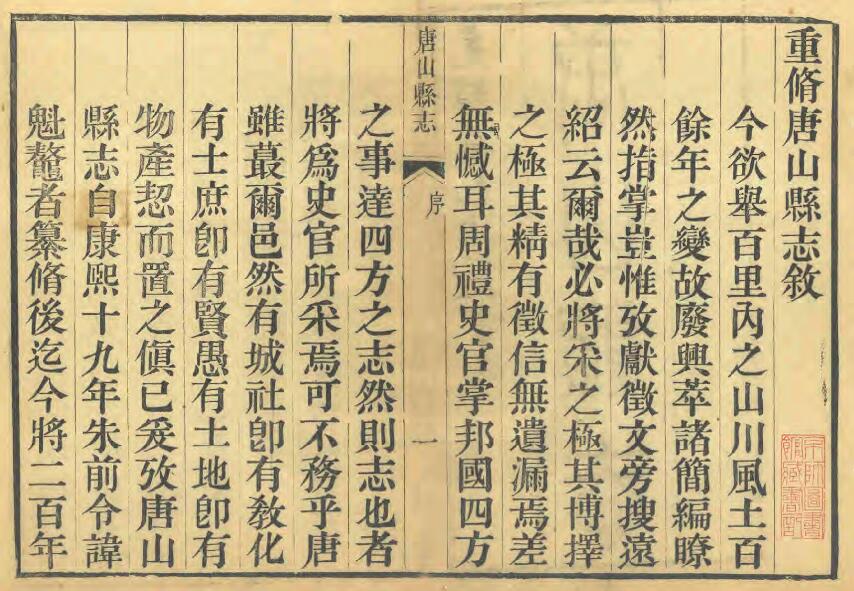 重脩唐山縣志敘
今欲舉百里內之山川風土百
餘年之變故廢興萃諸簡編瞭
然指掌豈惟攷獻徵文旁搜遠
紹云爾哉必將采之極其博擇
之極其精有徵信無遺漏焉差
無憾耳周禮史官掌邦國四方
唐山縣志
序
一
之事達四方之志然則志也者
將爲史官所采焉可不務乎唐
雖蕞爾邑然有城社卽有敎化
有士庶卽有賢愚有土地卽有
物產恝而置之傎已爰攷唐山
縣志自康熙十九年朱前令諱
魁鼇者纂脩後迄今將二百年